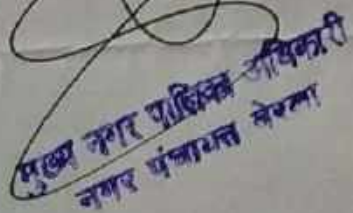 मुख्य नगर पालिका अधिकारी
नगर पंचायत